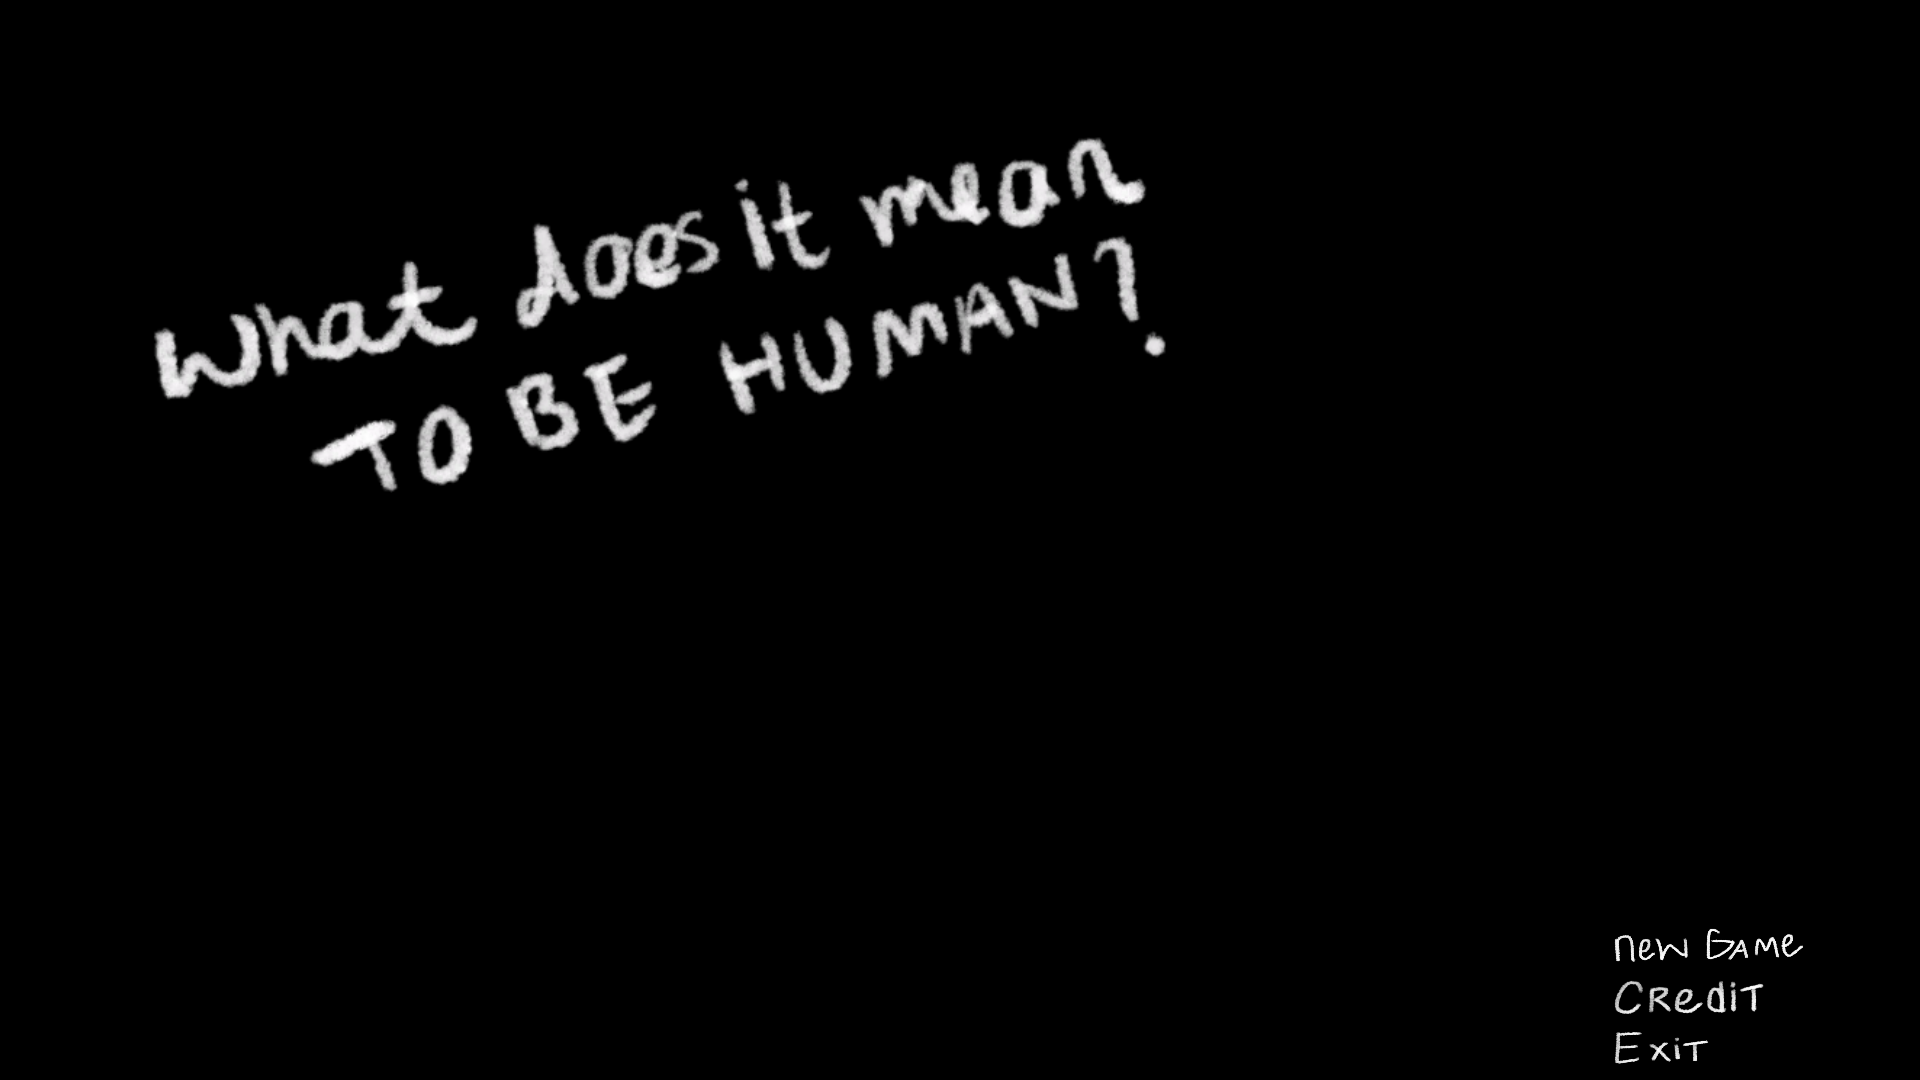 What does it mean
TO BE HUMAN?
new GAMe
CRediT
ExiT